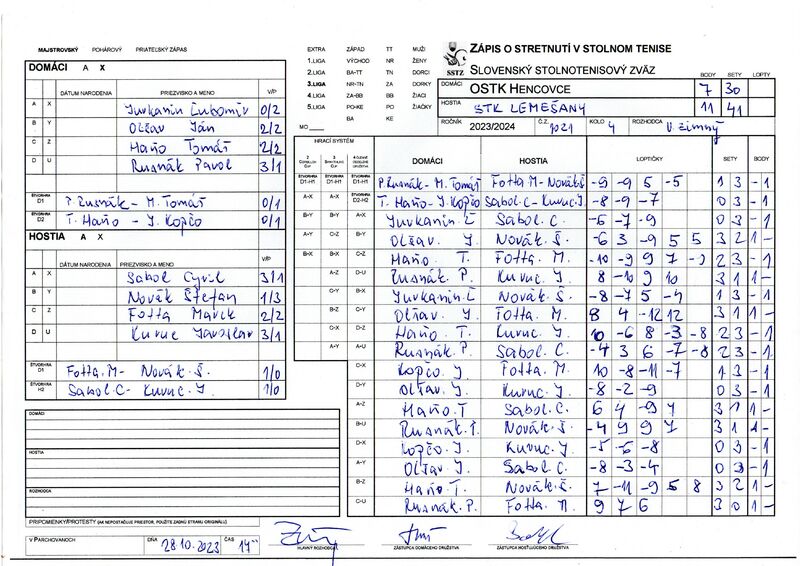 MAJSTROVSKÝ POHÁROVÝ PRIATEĽSKÝ ZÁPAS
EXTRA ZÁPAD TT MUŽI
1.LIGA VÝCHOD NR ŽENY
2.LIGA BA-TT TN DORCI
3.LIGA NR-TN ZA DORKY
4.LIGA ZA-BB BB ŽIACI
5.LIGA PO-KE PO ŽIAČKY
BA KE
MO
SSTZ
ZÁPIS O STRETNUTÍ V STOLNOM TENISE
SLOVENSKÝ STOLNOTENISOVÝ ZVÄZ
BODY SETY LOPTY
DOMÁCI: OSTK HENCOVCE 7 30
HOSTIA STK LEMEŠANY 11 41
ROČNÍK 2023/2024 Č.Z. 1021 KOLO 4 ROZHODCA V. Zimný
DOMÁCI A X
DÁTUM NARODENIA PRIEZVISKO A MENO V/P
A X Jurkanin Ľubomír 0/2
B Y Oľšav Ján 2/2
C Z Haňo Tomáš 2/2
D U Rusnák Pavol 3/1
ŠTVORHRA D1 P. Rusnák - M. Tomáš 0/1
ŠTVORHRA D2 T. Haňo - J. Kopčo 0/1
HOSTIA A X
DÁTUM NARODENIA PRIEZVISKO A MENO V/P
A X Sabol Cyril 3/1
B Y Novák Štefan 1/3
C Z Fotta Marek 2/2
D U Kuruc Jaroslav 3/1
ŠTVORHRA D1 Fotta M- Novák Š. 1/0
ŠTVORHRA H2 Sabol C- Kuruc J. 1/0
HRACÍ SYSTÉM
DOMÁCI HOSTIA LOPTIČKY SETY BODY
D1-H1 D1-H1 D1-H1 P. Rusnák- M. Tomáš Fotta M- Novák Š -9 -9 5 -5 1 3 -1
A-X A-X D2-H2 T. Haňo- J. Kopčo Sabol C- Kuruc J. -8 -9 -7 0 3 -1
B-Y B-Y A-X Jurkanin Ľ Sabol C. -6 -7 -9 0 3 -1
A-Y C-Z B-Y Oľšav J. Novák Š. -6 3 -9 5 5 3 2 1 -
B-X B-X C-Z Haňo T. Fotta M. -10 -9 9 7 -9 2 3 -1
A-Z D-U Rusnák P. Kuruc J. 8 -10 9 10 3 1 1 -
C-Y B-X Jurkanin Ľ Novák Š. -8 -7 5 -4 1 3 -1
B-Z Oľšav J. Fotta M. 8 4 -12 12 3 1 1 -
C-X D-Z Haňo T. Kuruc J. 10 -6 8 -3 -8 2 3 -1
A-Y A-U Rusnák P. Sabol C. -4 3 6 -7 -8 2 3 -1
Kopčo J. Fotta M. 10 -8 -11 -7 1 3 -1
D-Y Oľšav J. Kuruc J. -8 -2 -9 0 3 -1
A-Z Haňo T Sabol C. 6 4 -9 4 3 1 1 -
B-U Rusnák P. Novák Š. -4 9 9 7 3 1 1 -
D-X Kopčo J. Kuruc J. -5 -6 -8 0 3 -1
A-Y Oľšav J. Sabol C. -8 -3 -4 0 3 -1
B-Z Haňo T. Novák Š. 7 -11 -9 5 8 3 2 1 -
C-U Rusnák P. Fotta M. 9 7 6 3 0 1 -
DOMÁCI
HOSTIA
ROZHODCA
PRIPOMIENKY/PROTESTY (AK NEPOSTAČUJE PRIESTOR, POUŽITE ZADNÚ STRANU ORIGINÁLU)
V PARCHOVANOCH DŇA 28.10.2023 ČAS 14⁰⁰
HLAVNÝ ROZHODCA ZÁSTUPCA DOMÁCEHO DRUŽSTVA ZÁSTUPCA HOSŤUJÚCEHO DRUŽSTVA